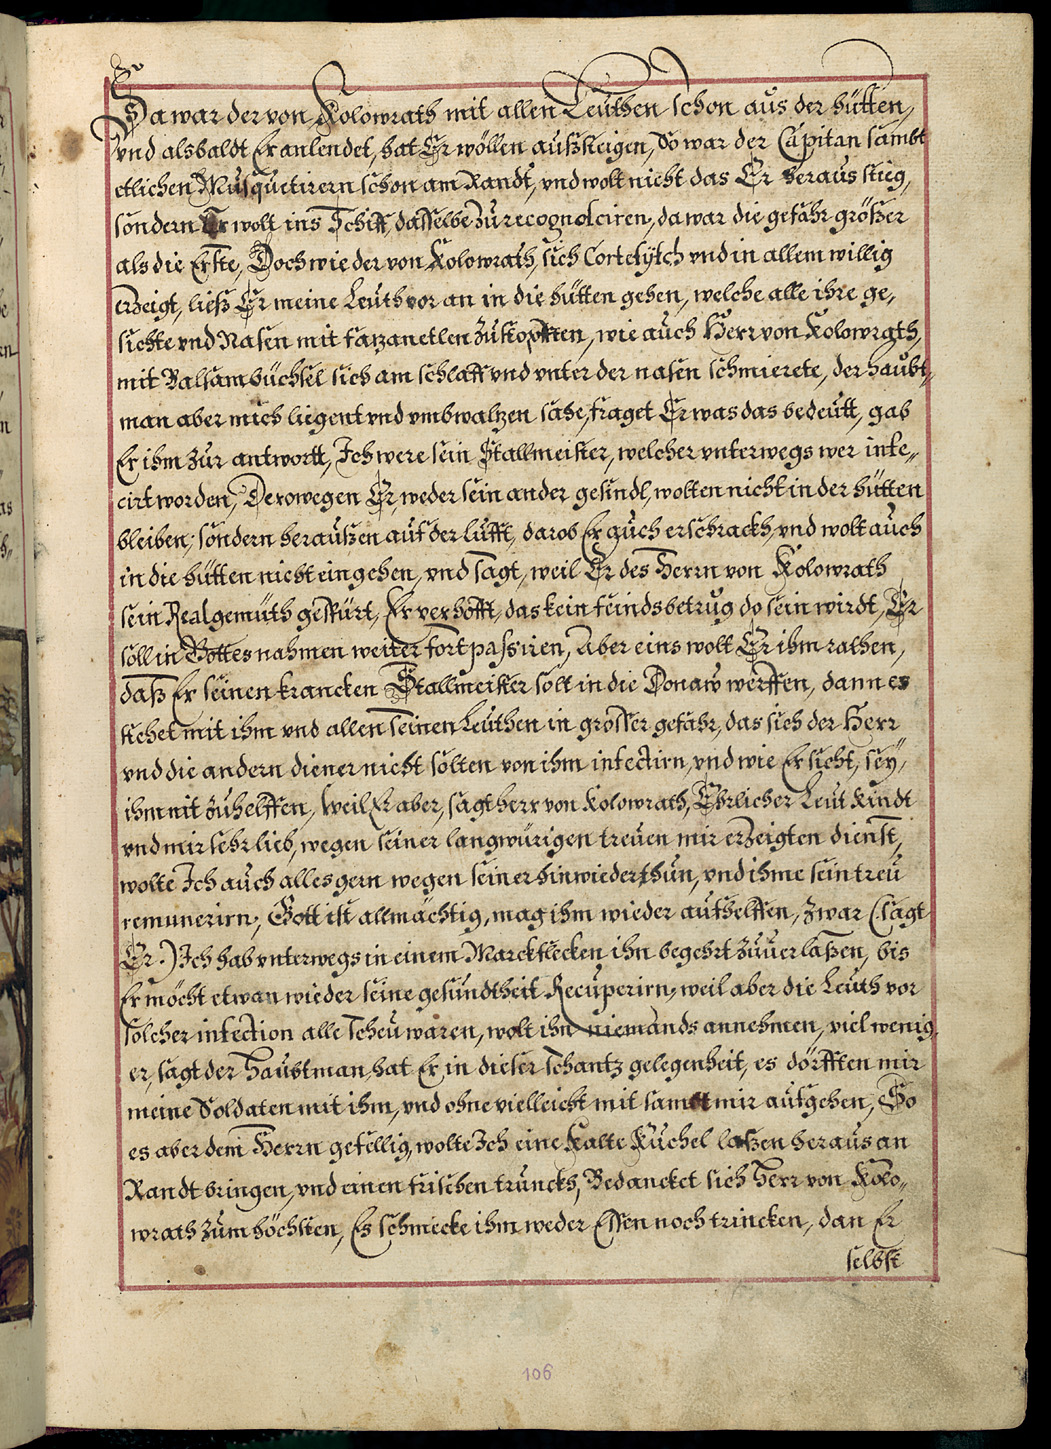 Da war der von Kolowrath mit allen Leuthen schon aus der hütten,
vnd alsbaldt Er anlendet, hat Er wöllen außsteigen, So war der Capitan sambt
etlichen Musquetirern schon am Randt, vnd wolt nicht das Er heraus stieg,
sondern Er wolt ins Schiff, dasselbe zu recognosciren, da war die gefahr größer
als die Erste, Doch wie der von Kolowrath, sich Cortesisch vnd in allem willig
erzeigt, ließ Er meine Leuth vor an in die hütten gehen, welche alle ihre ge,
sichte vnd Nasen mit fazanetlen zustopften, wie auch Herr von Kolowrath,
mit Balsambüchsel sich am schlaff vnd vnter der nasen schmierete, der haubt,
man aber mich ligent vnd vmbwaltzen sahe, fraget Er was das bedeutt, gab
Er ihm zur antwortt, Ich were sein Stallmeister, welcher vnterwegs wer infe,,
cirt worden, Derowegen Er, weder sein ander gesindl, wolten nicht in der hütten
bleiben, sondern heraußen auf der lufft, darob Er auch erschrackh, vnd wolt auch
in die hütten nicht eingehen, vnd sagt, weil Er des Herrn von Kolowrath
sein Real gemüth gespürt, Er verhofft, das kein feindsbetrug do sein wirdt, Er
soll in Gottes nahmen weiter fort passiren, Aber eins wolt Er ihm rathen,
daß Er seinen krancken Stallmeister solt in die Donaw werffen, dann es
stehet mit ihm vnd allen seinen Leuthen in grosser gefahr, das sich der Herr
vnd die andern diener nicht solten von ihm infectirn, vnd wie Er sicht, sey,
ihm nit zuhelffen, Weil Er aber, sagt herr von Kolowrath, Ehrlicher Leut Kindt
vnd mir sehr lieb, wegen seiner langwürigen treuen mir erzeigten dienst,
wolte Ich auch alles gern wegen seiner hinwieder thun, vnd ihme sein treu
remunerirn, Gott ist allmächtig, mag ihm wieder aufhelffen, zwar (sagt
Er.) Ich hab vnterwegs in einem Marckflecken ihn begehrt zuuerlaßen, bis
Er möcht etwan wieder seine gesundtheit Recuperirn, weil aber die Leuth vor
solcher infection alle scheu waren, wolt ihn niemands annehmen, viel wenig,
er, sagt der Haubtman, hat Er in dieser Schantz gelegenheit, es dörfften mir
meine Soldaten mit ihm, vnd ohne vielleicht mit sambt mir aufgehen, So
es aber dem Herrn gefellig, wolte Ich eine Kalte Kuchel laßen heraus an
Randt bringen, vnd einen frischen trunckh, Bedancket sich Herr von Kolo,,
wrath zum höchsten, Es schmecke ihm weder Essen noch trincken, dan Er
selbst
106